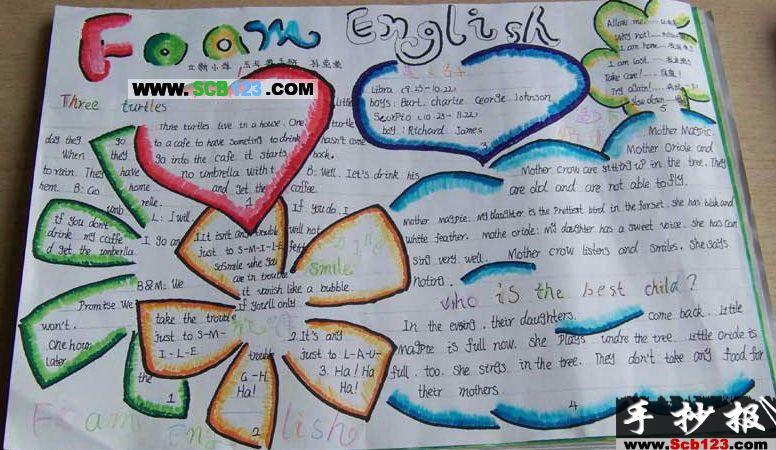 Foam English
www.SCB123.com
Three turtles
Three turtles live in a house. One
to a cafe to have someting to drink
go into the cafe it starts
no umbrella with t
and get the
1
little
turtle
hasn't come
back.
B: Well. Let's drink his
coffee.
day they go
When they
to rain. They have
hem. B: Go home
umb relle.
L: I will
If you don't
drink my caffe
d get the umberlla.
I go an
B&M: We
Promise We
won't.
One hour
Later
the
1
If you do. I
will not
1It isn't any trouble
just to S-M-I-L-E
So smile whe you
are in trouble
it vanish like a bubble.
If you'll only
take the trouble
just to S-M-
I-L-E
smile
2.It's any
trouble
just to L-A-U-
G-H
3. Ha! Ha
Ha!
Ha!
2
Libra (9.23-10.22)
boys: Bart. charlie. George. Johnson
Scorpio (10.23-11.22)
boy: Richard James
3
Allow me.
Why not!
I am home.
I am lost.
Take care!
Try again!
Slow down
5
Mother Magpie.
Mother Oriole and
Mother crow are sitting up in the tree. They
are old and are not able to fly.
Mother magpie: my daughter is the Prettest bird in the forset. she has blak and
white feather. mothe oriole: My daughter has a sweet voice. she has can
sing very well. Mother crow listens and smiles. She says
noting.
who is the best child?
In the eveing. their daughters. come back. Little
magpie is full now. she Plays undre the tree. Little Oriole is
full. too. She sings. in the tree. They don't take any food for
their mothers.
4
Foam English
手抄报
www.Scb123.com